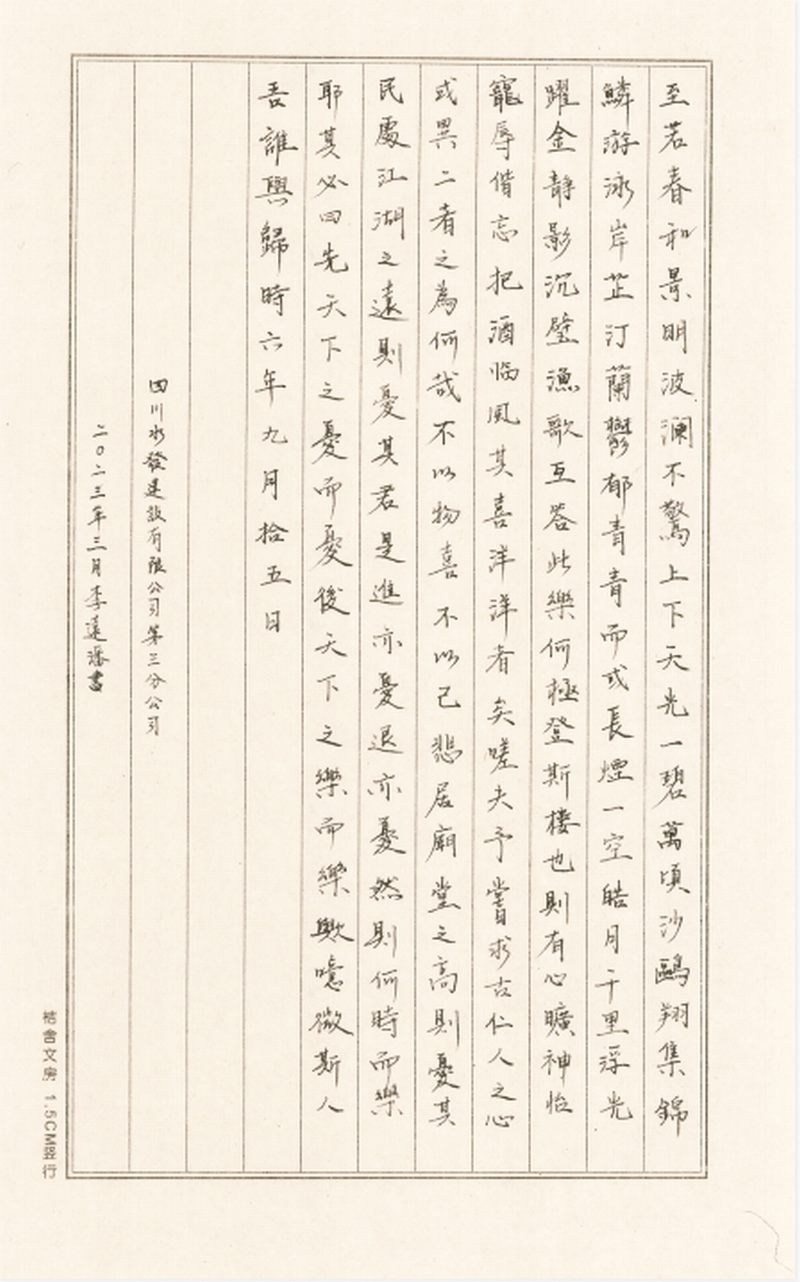 至若春和景明波瀾不驚上下天光一碧萬頃沙鷗翔集錦
鱗游泳岸芷汀蘭鬱郁青青而或長煙一空皓月千里浮光
躍金静影沉璧漁歌互答此樂何極登斯楼也則有心曠神怡
寵辱偕忘把酒临風其喜洋洋者矣嗟夫予嘗求古仁人之心
或異二者之為何哉不以物喜不以己悲居廟堂之高則憂其
民處江湖之遠則憂其君是進亦憂退亦憂然則何時而樂
耶其必曰先天下之憂而憂後天下之樂而樂歟噫微斯人
吾誰與歸時六年九月拾五日
四川水發建設有限公司第三分公司
二〇二三年三月李遠潘書
文房 1.5CM竖行